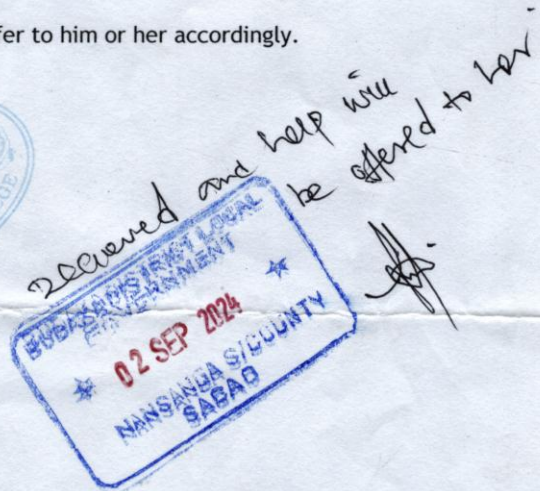 fer to him or her accordingly.
Received and help will
be offered to her.
DISTRICT LOCAL
GOVERNMENT
02 SEP 2024
NANSANGA S/COUNTY
GE